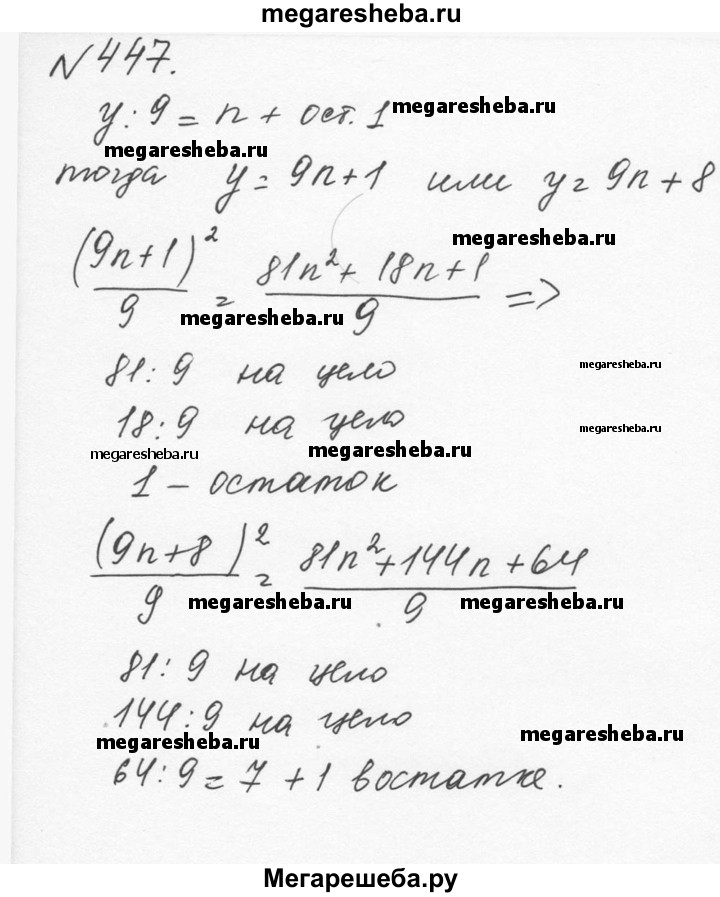 megaresheba.ru
N 447.
y : 9 = n + ост. 1 megaresheba.ru
megaresheba.ru
тогда y = 9n+1 или y = 9n + 8
megaresheba.ru
(9n+1)² / 9 = (81n² + 18n+1) / 9 =>
megaresheba.ru
81 : 9 на цело megaresheba.ru
18 : 9 на цело megaresheba.ru
megaresheba.ru megaresheba.ru
1 – остаток
(9n+8)² / 9 = (81n²+144n+64) / 9
megaresheba.ru megaresheba.ru
81 : 9 на цело
144 : 9 на цело
megaresheba.ru megaresheba.ru
64 : 9 = 7 + 1 востатке.
Мегарешеба.ру